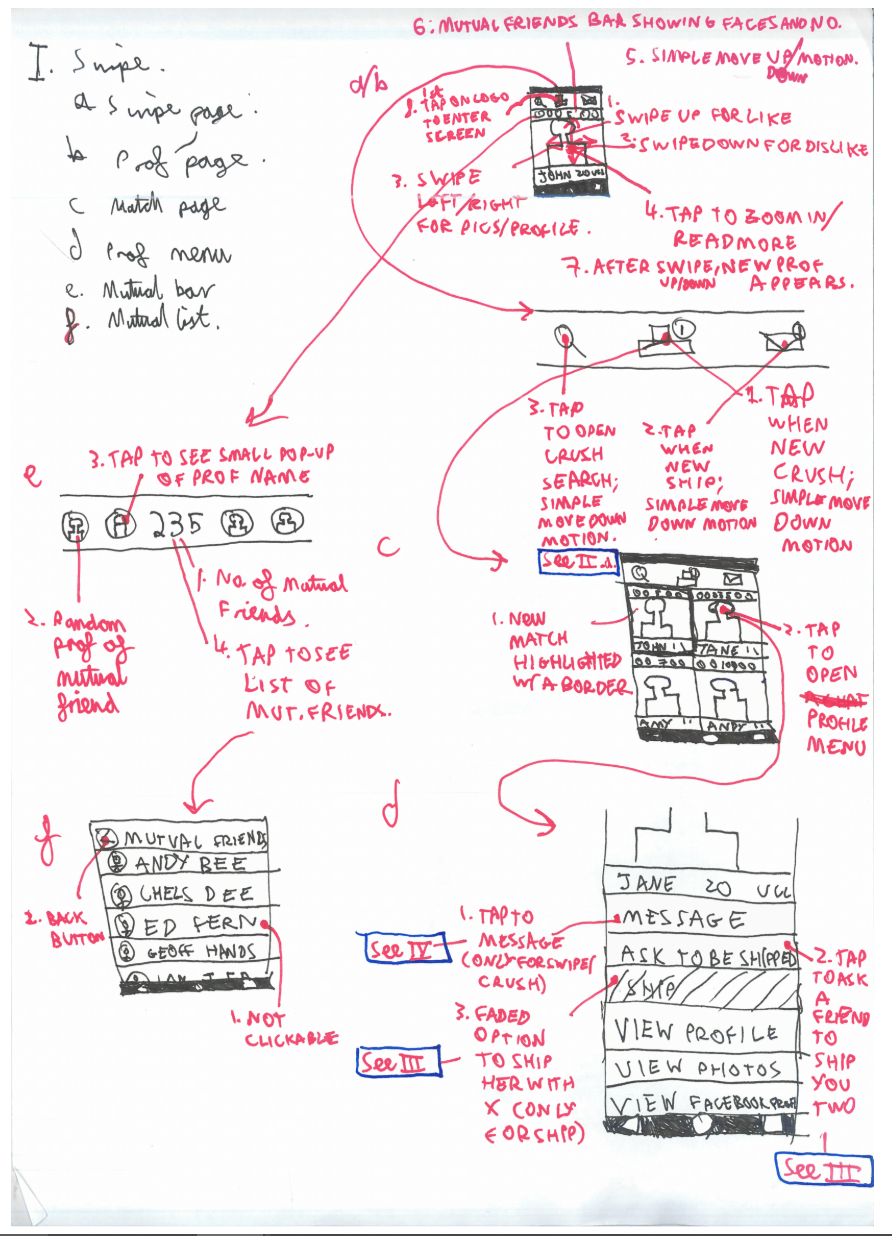 I. Swipe.
a Swipe page.
b Prof page.
c Match page
d Prof menu
e. Mutual bar
f. Mutual list.
6: MUTUAL FRIENDS BAR SHOWING FACES AND NO.
5. SIMPLE MOVE UP/MOTION.
DOWN
a/b
1st
8. TAP ON LOGO
TO ENTER
SCREEN
1.
SWIPE UP FOR LIKE
2: SWIPE DOWN FOR DISLIKE
JOHN 20 UCL
3. SWIPE
LEFT/RIGHT
FOR PICS/PROFILE.
4. TAP TO ZOOM IN/
READ MORE
7. AFTER SWIPE, NEW PROF
UP/DOWN APPEARS.
1
3. TAP
TO OPEN
CRUSH
SEARCH;
SIMPLE
MOVE DOWN
MOTION.
See II
2. TAP
WHEN
NEW
SHIP;
SIMPLE MOVE
DOWN MOTION
1. TAP
WHEN
NEW
CRUSH;
SIMPLE MOVE
DOWN
MOTION
e
3. TAP TO SEE SMALL POP-UP
OF PROF NAME
235
1. No. of Mutual
Friends.
2. Random
prof of
mutual
friend
4. TAP TO SEE
LIST OF
MUT. FRIENDS.
c
1. NEW
MATCH
HIGHLIGHTED
W/ A BORDER
JOHN
JANE
AMY
ANDY
2. TAP
TO
OPEN
PROFILE
MENU
f
MUTUAL FRIENDS
ANDY BEE
CHELS DEE
ED FERN
GEOFF HANDS
2. BACK
BUTTON
1. NOT
CLICKABLE
d
JANE 20 UCL
MESSAGE
ASK TO BE SHIPPED
SHIP
VIEW PROFILE
VIEW PHOTOS
VIEW FACEBOOK PROF
1. TAP TO
MESSAGE
(ONLY FOR SWIPE/
CRUSH)
See IV
3. FADED
OPTION
TO SHIP
HER WITH
X (ONLY
FOR SHIP)
See III
2. TAP
TO ASK
A
FRIEND
TO
SHIP
YOU
TWO
See III